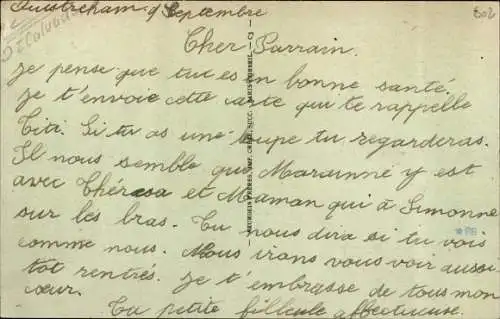 Ouistreham 9 Septembre
Cher Parrain.
Je pense que tu es en bonne santé.
Je t'envoie cette carte qui te rappelle
Titi. Si tu as une loupe tu regarderas.
Il nous semble que Marainné y est
avec Thérèsa et Maman qui à Simonne
sur les bras. Tu nous dira si tu vois
comme nous. Nous irons vous voir aussi
tot rentrés. Je t'embrasse de tous mon
cœur.
Ta petite filleule affectueuse.
(Calvados)